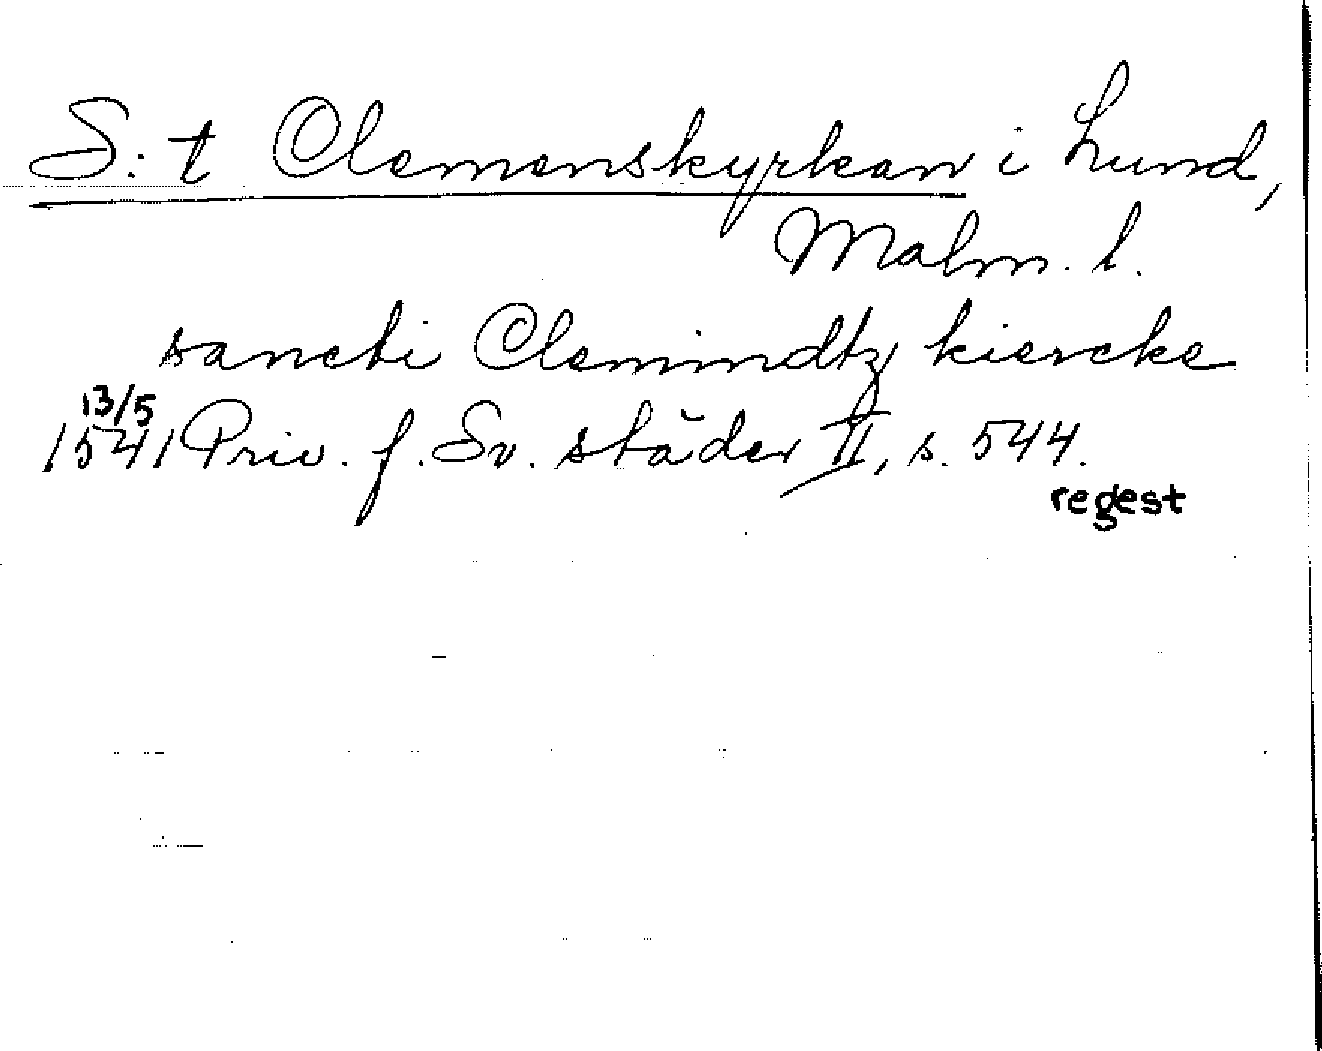 S:t Clemenskyrkan i Lund,
Malm. l.
sancti Clemindtz kiercke
13/5
1541 Priv. f. Sv. städer II, s. 544.
regest